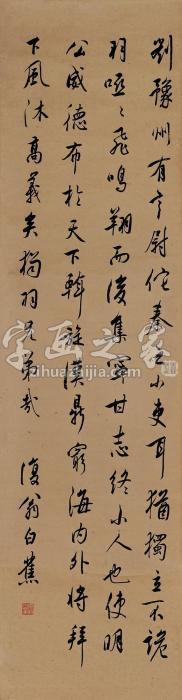 劉豫州有言尉佗秦之小吏耳猶獨立不詭
羽啞〻飛鳴翔而後集寧甘志終小人也使明
公威德布於天下斡旋漢鼎窮海内外將拜
下風沐高義矣獨羽兄弟哉
復翁白蕉
字画之家
zihuazhijia.com